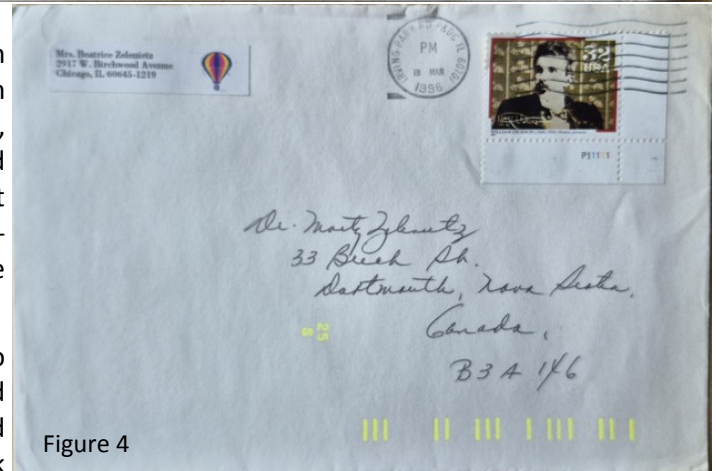 Mrs. Beatrice Zelenietz
2917 W. Birchwood Avenue
Chicago, IL 60645-1219
IRVING PARK RD P&DC IL 60701
PM
MAR
1996
32
USA
P11111
Dr. Marty Zelenietz
33 Birch
Dartmouth, Nova Scotia,
Canada,
B3A 1Y6
25
8
Figure 4